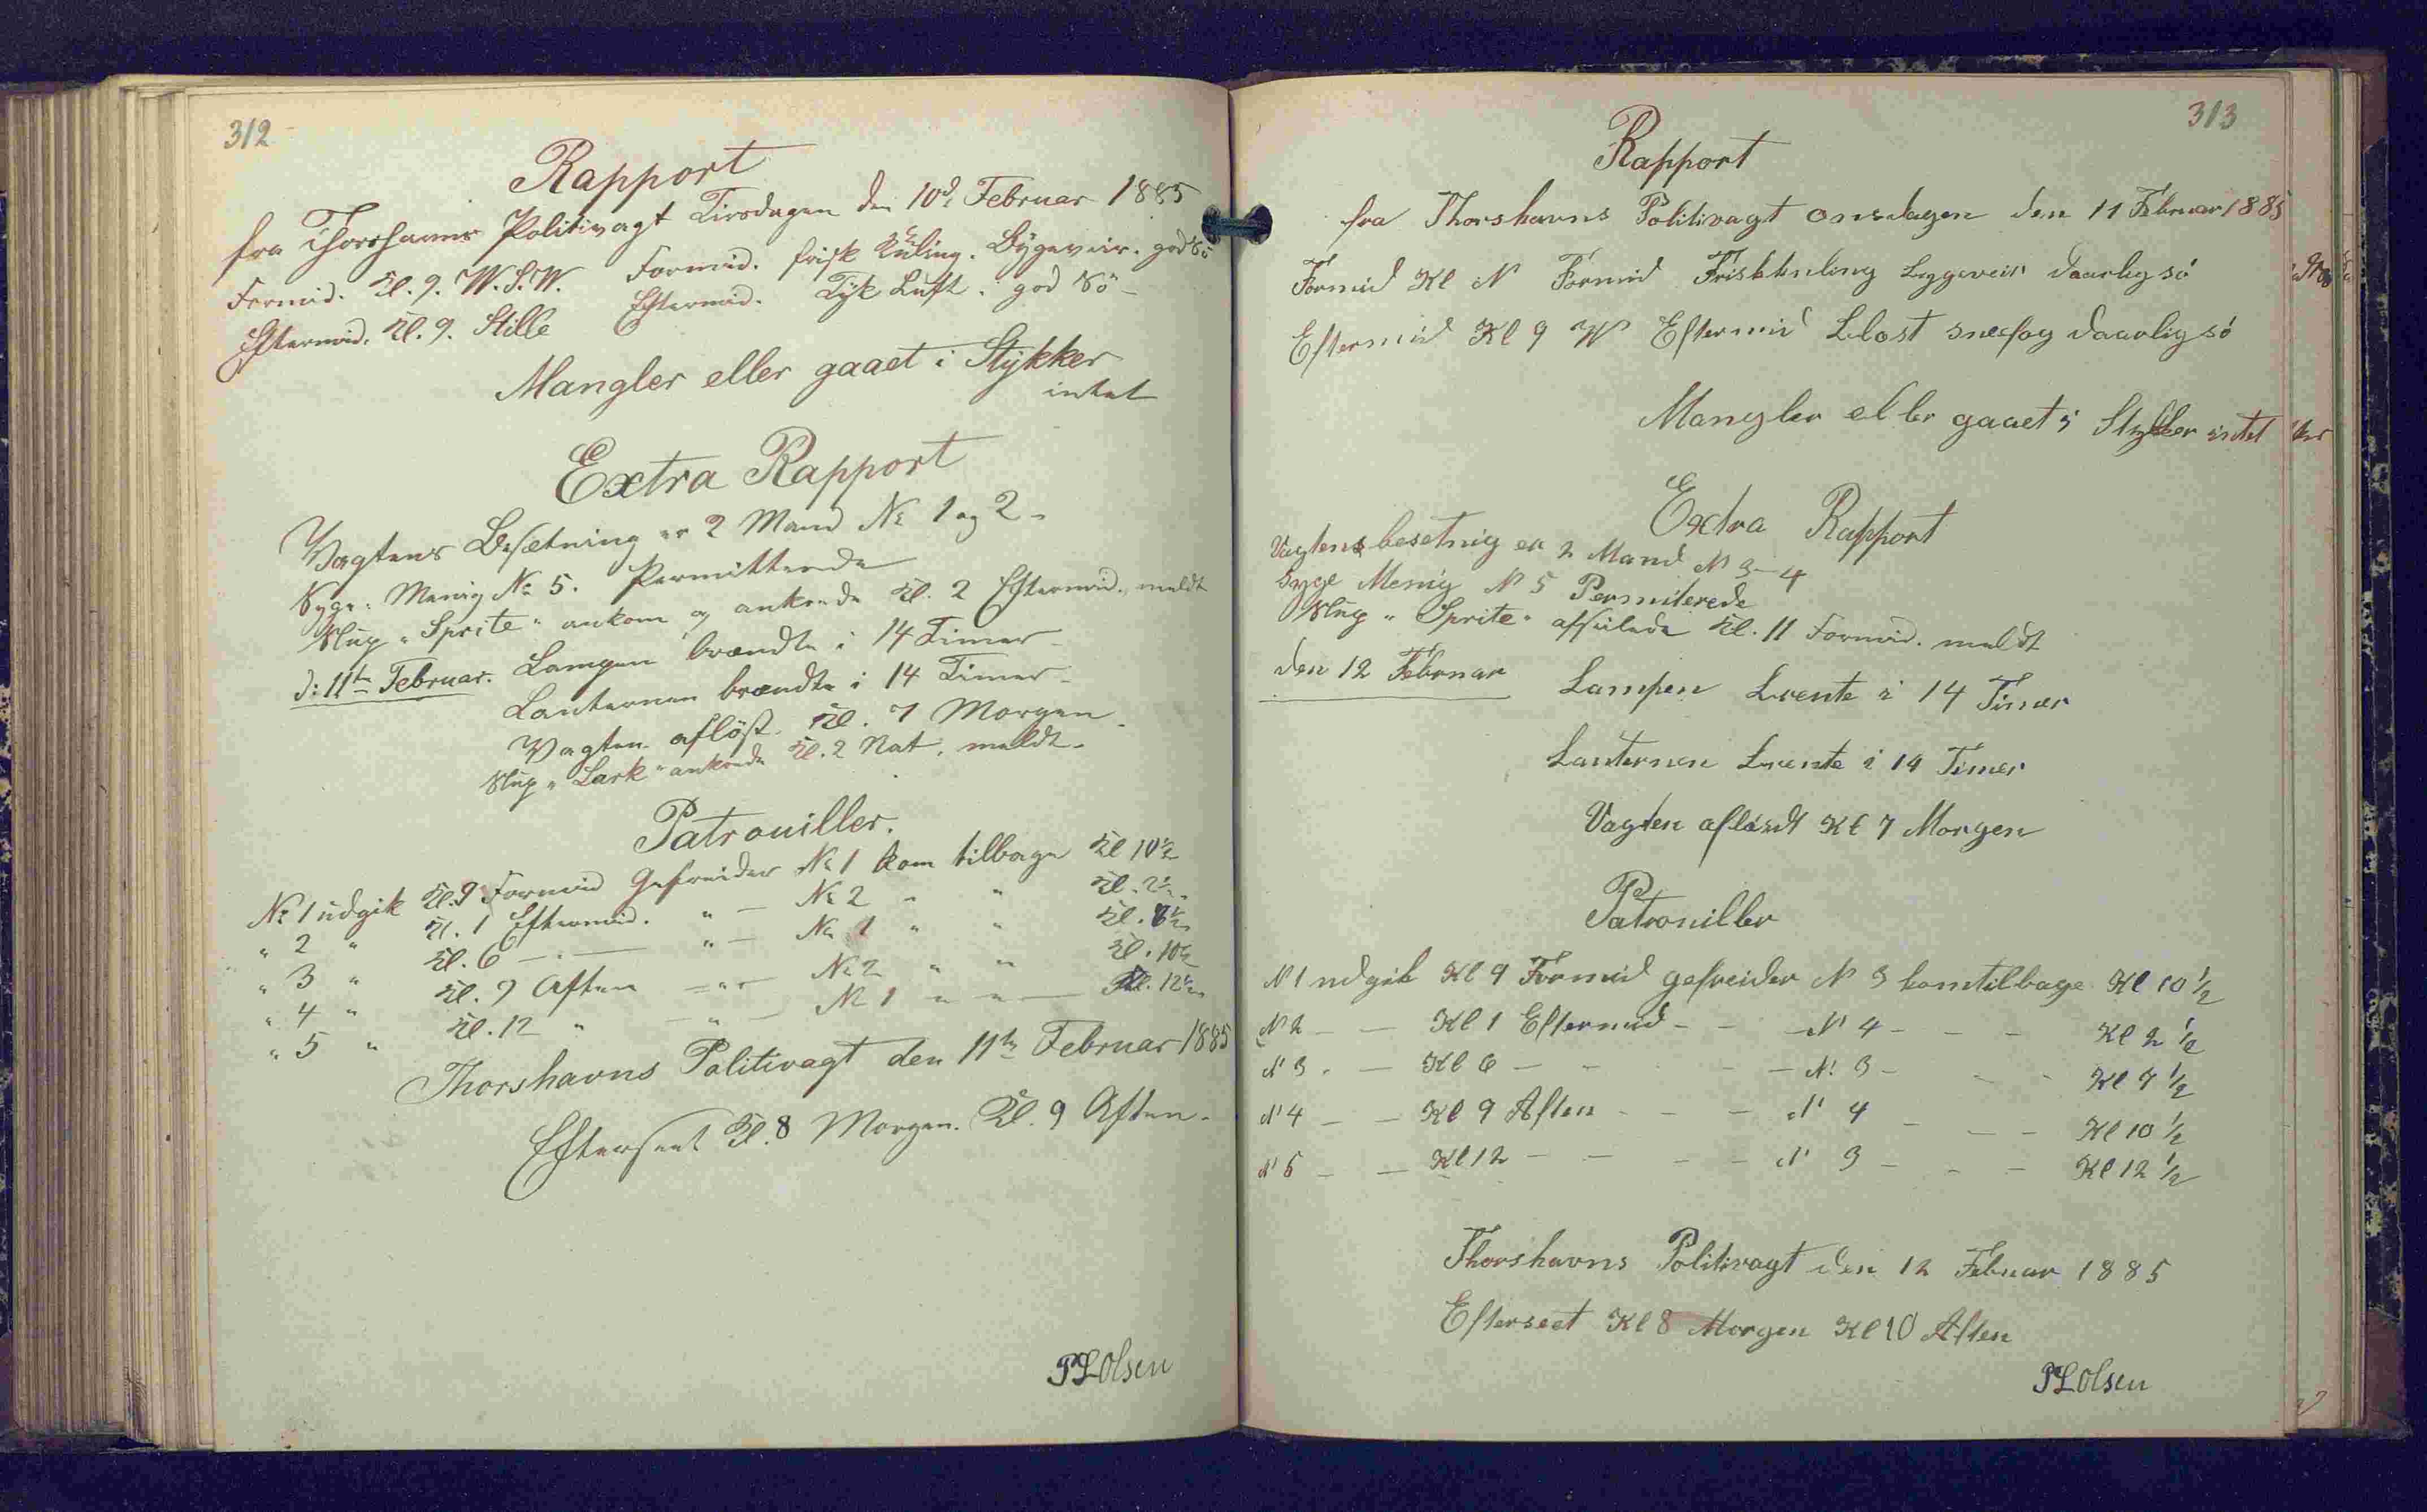 312
Rapport
fra Thorshavns Politivagt Tirsdagen den 10d Februar 1885
Formid. Kl. 9. W.S.W. Formid. frisk Kuling. Bygeveir. god Sö
Eftermid. Kl. 9. Stille Eftermid. Tyk Luft. god Sö
Mangler eller gaaet i Stykker
intet
Extra Rapport
Vagtens Besætning er 2 Mand No 1 og 2
Syge: Menig No 5. Permitterede
Slup "Sprite" ankom og ankrede Kl. 2 Eftermid. meldt
d: 11te Februar. Lampen brændte i 14 Timer
Lanternen brændte i 14 Timer
Vagten aflöst Kl. 7 Morgen
Slup "Lark" ankrede Kl. 2 Nat. meldt
Patrouiller.
No 1 udgik Kl. 9 Formid Gefreider No 1 kom tilbage Kl 10½
" 2 " Kl. 1 Eftermid. " — No 2 " " Kl. 2½
" 3 " Kl. 6 — " — " — No 1 " " Kl. ½
" 4 " Kl. 9 Aften — " — No 2 " " Kl. 10½
" 5 " Kl. 12 " — " — No 1 " " — Kl. 12½
Thorshavns Politivagt den 11te Februar 1885
Efterseet Kl. 8 Morgen. Kl. 9 Aften.
PLOlsen
313
Rapport
fra Thorshavns Politivagt onsdagen den 11 Februar 1885
Formid Kl N Formid Friskkuling Byggeveir daarlig sö
Eftermid Kl 9 W Eftermid Blæst sneefog daarlig sö
Mangler eller gaaet i Stykker intet
Extra Rapport
Vagtens besetnig er 2 Mand N 3-4
Syge Menig N 5 Permiterede
Slup "Sprite" afseilede Kl. 11 Formid. meldt
den 12 Februar Lampen brente i 14 Timer
Lanternen brente i 14 Timer
Vagten aflösdt Kl 7 Morgen
Patrouiller
N 1 udgik Kl 9 Formid gefreider N 3 kom tilbage Kl 10 ½
N 2 — — Kl 1 Eftermid - - - N 4 - - - Kl 2 ½
N 3 - — Kl 6 — - - - N 3 - - - Kl 7 ½
N 4 — — Kl 9 Aften - - — N 4 - — — Kl 10 ½
N 5 — — Kl 12 — — - - N 3 - - — Kl 12 ½
Thorshavns Politivagt den 12 Februar 1885
Efterseet Kl 8 Morgen Kl 10 Aften
PLOlsen